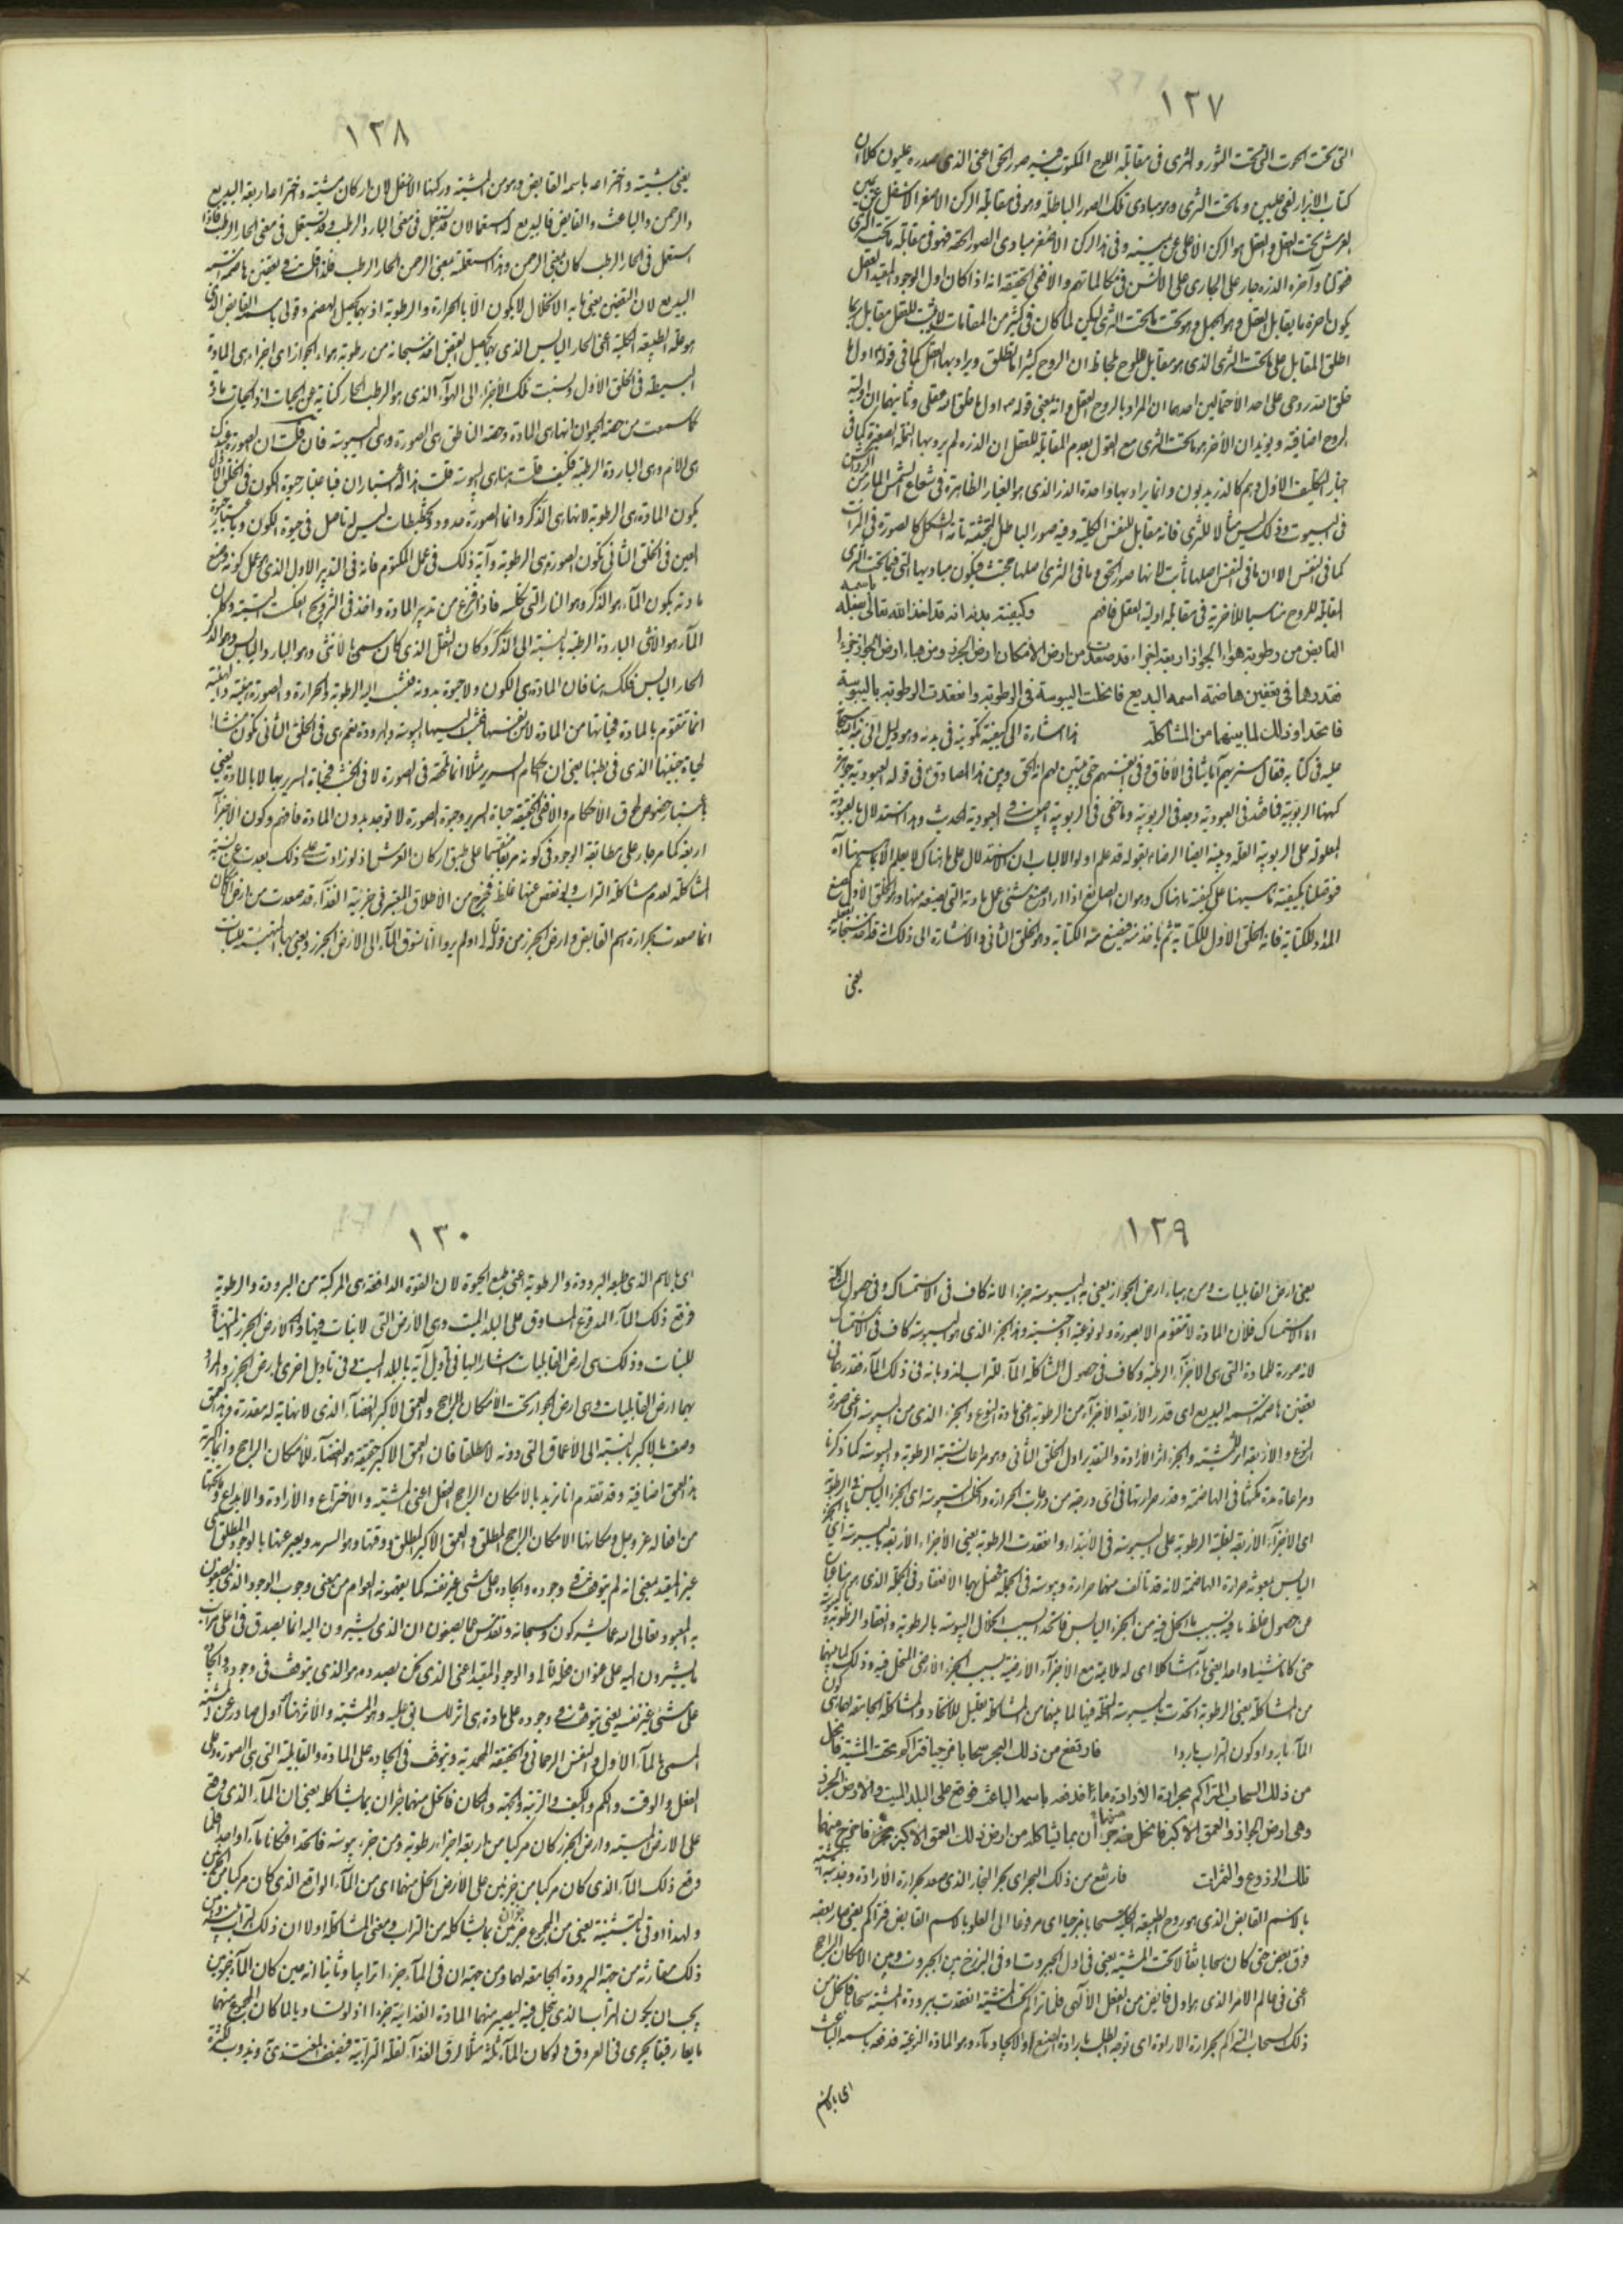 ١٢٧
التى تحت الحوت التى تحت الثور والثرى فى مقابلة اللوح المكتوب فيه صور الحق اعنى الذى صدره عليون كلا ان
كتاب الابرار لفى عليين وما تحت الثرى وهو مبادى تلك الصور الباطلة وهو فى مقابلة الركن الاصفر الاسفل عن يمين
العرش تحت العقل والعقل هو الركن الاعلى عن يمينه وفى هذا الركن الاصفر مبادى الصور الحقة فهو فى مقابلة ما تحت الثرى
فقولنا وآخره الذرة جار على الجارى على الالسن فى مكالماتهم والا ففى الحقيقة انه اذا كان اول الوجود المقيد العقل
يكون اخره ما يقابل العقل وهو الجهل وهو تحت ما تحت الثرى لكن لما كان فى كثير من المقامات لا يثبت للعقل مقابل
اطلق المقابل على ما تحت الثرى الذى هو مقابل للروح بلحاظ ان الروح كثيرا ما تطلق ويراد بها العقل كما فى قوله اول ما
خلق الله روحى على احد الاحتمالين احدهما ان المراد بالروح العقل وانه معنى قوله اول ما خلق الله عقلى وثانيهما ان اولية
الروح اضافية ويؤيد ان الأخر هو ما تحت الثرى مع القول بعدم المقابلة للعقل ان الذرة لم يرد بها النملة الصغيرة كما فى
اخبار التكليف الاول وهم كالذر يدبون وانما يراد بها واحدة الذر الذى هو الغبار الظاهرة فى شعاع الشمس المار من
فى البيوت وذلك ليس مثالا للثرى فانه مقابل للنفس الكلية وفيه صور الباطل المجتثة بانه لشكل كالصورة فى المرآت
كما فى النفس الا ان ما فى النفس اصلها ثابت لانها صور الحق وما فى الثرى اصلها مجتث فيكون مباديها التى فيما تحت الثرى
المقابلة للروح مناسبا للأخرية فى مقابلة اولية العقل فافهم وكيفية بدئه انه قد اخذ الله تعالى بفعله باسمه
القابض من رطوبة هواء الجواز اربعة اجزاء قد صعدت من ارض الامكان ارض الجرز ومن هباء ارض الجواز جزءا
فقدرها فى تعفين هاضمة اسمه البديع فانحلت اليبوسة فى الرطوبة وانعقدت الرطوبة باليبوسة
فاتحدا وذلك لما بينهما من المشاكلة هذا اشارة الى كيفية تكوينه فى بدئه وهو دليل انى نبه سبحانه
عليه فى كتابه فقال سنريهم آياتنا فى الآفاق وفى انفسهم حتى يتبين لهم انه الحق وبين هذا الصادق ع فى قوله العبودية جوهرة
كنهها الربوبية فما فقد فى العبودية وجد فى الربوبية وما خفى فى الربوبية اصيب فى العبودية الحديث وهذا استدلال بالعبودية
المعلولة على الربوبية العلة وبينه ايضا الرضا ع بقوله قد علم اولو الالباب ان الاستدلال على ما هناك لا يعلم الا بما هيهنا اه
فوصلنا بكيفية ما هيهنا على كيفية ما هناك وهو ان الصانع اذا اراد صنع شئ عمل مادته التى يصنعه منها وهو الخلق الأول كصنع
المداد للكتابة فانه الخلق الأول للكتابة ثم ياخذ منه فيصنع منه الكتابة وهو الخلق الثانى والاشارة الى ذلك انه قد اخذ سبحانه بفعله
يعنى
١٢٨
يعنى بمشيته واختراعه باسمه القابض وهو من المشية وركنها الأسفل لان اركان مشيته واختراعه اربعة البديع
والرحمن والباعث والقابض فالبديع له استعمالان قد يستعمل فى معنى البارد الرطب وقد يستعمل فى معنى الحار الرطب فاذا
استعمل فى الحار الرطب كان بمعنى الرحمن وهنا استعملته بمعنى الرحمن الحار الرطب فلذا قلت فى تعفين هاضمة اسمه
البديع لان التعفين يعنى به الانحلال لا يكون الا بالحرارة والرطوبة اذ بهما يحصل الهضم وقولى باسمه القابض الذى
هو علة الطبيعة الكلية اعنى الحار اليابس الذى بها يحصل القبض اخذ سبحانه من رطوبة هواء الجواز اى اجزاء هى المادة
البسيطة فى الخلق الأول ونسبت تلك الأجزاء الى الهواء الذى هو الرطب الحار كناية عن الحيات اذ الحيات مادة
كما سمعت من حصة الحيوان انها هى المادة وحصة الناطق هى الصورة وهى اليبوسة فان قلت ان الصورة عندك
هى الام وهى الباردة الرطبة فكيف قلت هنا هى اليبوسة قلت هنا له اعتباران فباعتبار حيوة الكون فى الخلق الأول
يكون المادة هى الرطوبة لانها هى الذكر وانما الصورة حدود وتخطيطات ليس لها تاصل فى حيوة الكون وباعتبار حيوة
العين فى الخلق الثانى تكون الصورة هى الرطوبة وآية ذلك فى عمل المكتوم فانه فى التدبير الاول الذى هو عمل كونه وصنع
مادته يكون الماء هو الذكر وهو النار التى تكلسه فاذا فرغ من تدبير المادة واخذ فى التزويج انعكست النسبة وكان
الماء هو الانثى الباردة الرطبة بالنسبة الى الذكر وكان الثفل الذى كان يسمى بالأنثى وهو البارد اليابس هو الذكر
الحار اليابس فكذلك هنا فان المادة هى الكون ولا حيوة بدونه فنسب اليه الرطوبة والحرارة والصورة ميتة والميتة
انما تتقوم بالمادة فحياتها من المادة لا من نفسها فنسب اليها اليبوسة والبرودة نعم هى فى الخلق الثانى تكون منشأ
لحياة جنينها الذى فى بطنها يعنى ان احكام السرير مثلا انما تلحقه فى الصورة لا فى الخشب فحياة السرير بها لا بالمادة يعنى
باعتبار خصوص لحوق الأحكام والا ففى الحقيقة حياة السرير وحيوة الصورة لا توجد بدون المادة فافهم وكون الأجزاء
اربعة كما مر جار على مطابقة الوجود فى كونه مربعا منقسما على طبق اركان العرش اذ لو زادت على ذلك بعدت عن نسبة
المشاكلة لعدم مشاكلة التراب ولو نقص عنها غلظ فخرج من الأطلاق المعتبر فى جزئية الغذاء قد صعدت من ارض الامكان
انما صعدت بحرارة اسم القابض وارض الجرز من قوله اولم يروا انا نسوق الماء الى الأرض الجرز ويعنى بها المتهيئة للنبات
١٢٩
يعنى ارض القابليات ومن هباء ارض الجواز يعنى به اليبوسة جزءا لانه كاف فى الاستمساك وفى حصول المشاكلة
اما الاستمساك فلأن المادة لا تتقوم الا بصورة ولو نوعية او جنسية وهذا الجزء الذى هو اليبوسة كاف فى الاستمساك
لانه صورة للمادة التى هى الاجزاء الرطبة وكاف فى حصول المشاكلة الماء للتراب لذوبانه فى ذلك الماء فقدرهما فى
تعفين هاضمة اسمه البديع اى قدر الأربعة الأجزاء من الرطوبة اعنى مادة النوع والجزء الذى من اليبوسة اعنى صورة
النوع والأربعة اثر المشيته والجزء اثر الأرادة والتقدير اول الخلق الثانى وهو مراعات نسبة الرطوبة واليبوسة كما ذكرنا
ومراعاة مدة مكثها فى الهاضمة وقدر حرارتها فى اى درجة من درجات الحرارة وانحلت اليبوسة اى الجزء اليابس فى الرطوبة
اى الأجزاء الأربعة لغلبة الرطوبة على اليبوسة فى الأبتداء وانعقدت الرطوبة يعنى الأجزاء الأربعة باليبوسة اى بالجزء
اليابس بمعونة حرارة الهاضمة لانه قد تألف منهما حرارة ويبوسة فى الجملة فحصل بهما الانعقاد فى الجملة الذى هو
عن حصول غلظ ما فيه بسبب ما انحل فيه من الجزء اليابس فاتحدا بسبب انحلال اليبوسة بالرطوبة وانعقاد الرطوبة
حتى كانا شيئا واحدا يعنى ماء مشاكلا اى له ملايمة مع الأجزاء الأرضية بسبب الجزء الأرضى المنحل فيه وذلك لما بينهما
من المشاكلة يعنى الرطوبة اتحدت باليبوسة المنحلة فيها لما بينهما من المشاكلة بقبول للاتحاد والمشاكلة الجامعة لهما هى كون
الماء باردا وكون التراب باردا فارتفع من ذلك البحر سحابا مزجيا فتراكم تحت المشية فانحل
من ذلك السحاب المتراكم بحرارة الأرادة ماء فدفعه باسمه الباعث فوقع على البلد الميت والارض الجرز
وهى ارض الجواز والعمق الأكبر فانحل منهما جزءان بما يشاكله من ارض ذلك العمق الأكبر بجزء فاخرج منهما
تلك الزروع والثمرات فارتفع من ذلك البحر اى بحر البخار الذى صعد بحرارة الأرادة وجذبه
بالاسم القابض الذى هو روح الطبيعة الكلية سحابا مزجيا اى مرفوعا الى العلو بالاسم القابض فتراكم يعنى صار بعضه
فوق بعض حتى كان سحابا ثقالا تحت المشية يعنى فى اول الجبروت او فى البرزخ بين الجبروت وبين الامكان الراجح
اعنى فى عالم الأمر الذى هو اول فائض من الفعل الألهى فلما تراكم تحت المشية انعقدت ببرودة المشية سحابا فانحل من
ذلك السحاب المتراكم بحرارة الأرادة اى توجه الطلب بارادة الصنع او الايجاد ماء وهو المادة النوعية فدفعه باسمه الباعث
اى بالاسم
١٣٠
اى بالاسم الذى طبعه البرودة والرطوبة اعنى طبع الحيوة لان القوة الدافعة هى المركبة من البرودة والرطوبة
فوقع ذلك الماء المدفوع المساوق على البلد الميت وهى الأرض التى لا نبات فيها والأرض الجرز المتهيئة
للنبات وذلك هى ارض القابليات المشار اليها فى تأويل آية بالبلد الميت وفى تاويل اخرى بارض الجرز والمراد
بهما ارض القابليات وهى ارض الجواز تحت الأمكان الراجح والعمق الأكبر الفضاء الذى لا نهاية له مقدرة وهذا العمق
وصف بالاكبر بالنسبة الى الأعماق التى دونه لا مطلقا فان العمق الأكبر حقيقة هو الفضاء للأمكان الراجح وانما اكبرية
هذا العمق اضافية وقد تقدم انا نريد بالامكان الراجح الفعل اعنى المشية والأختراع والأرادة والأبداع وما يتبعها
من افعاله عز وجل ومكانها الامكان الراجح المطلق والعمق الأكبر المطلق ووقتها وهو السرمد ويعبر عنها بالوجود المطلق اى
غير المقيد بمعنى انه لم يتوقف فى وجوده وايجاده على شئ غير نفسه كما يعتقدونه العوام من معنى وجوب الوجود الذى يصفون
به المعبود تعالى الله عما يشركون وسبحانه وتقدس عما يصفون ان الذى يشيرون اليه انما يصدق فى اعلى مراتب
ما يشيرون اليه على عنوان خلقه تعالى والوجود المقيد اعنى الذى نحن بصدده هو الذى يتوقف فى وجوده وايجاده
على شئ غير نفسه يعنى يتوقف فى وجوده على مادة هى اثر للسابق عليه وهو المشية والأثر هنا اول صادر عن المشية
المسمى بالماء الأول والنفس الرحمانى والحقيقة المحمدية ويتوقف فى ايجاده على المادة والقابلية التى هى الصورة وعلى
الفعل والوقت والكم والكيف والرتبة والجهة والمكان فانحل منهما جزآن بما يشاكله يعنى ان الماء الذى وقع
على الارض الميتة وارض الجرز كان مركبا من اربعة اجزاء رطوبة ومن جزء يبوسة فاتحدا فكانا ماء واحدا فلما
وقع ذلك الماء الذى كان مركبا من جزئين على الأرض انحل منهما اى من الماء الواقع الذى كان مركبا من الجزئين
ولهذا اوتى بالتثنية يعنى من المجموع جزآن بما يشاكله من التراب ومعنى المشاكلة اولا ان ذلك التراب بينه وبين
ذلك مقارنة من جهة البرودة الجامعة لهما ومن جهة ان فى الماء جزءا ترابيا وثانيا انه حين كان الماء جزئين
يجب ان يكون التراب الذى ينحل فيه ليصير منهما المادة الغذائية جزءا اذ لو تساويا لما كان المجموع منهما
مايعا رقيقا يجرى فى العروق ولو كان الماء ثلثة مثلا لرق الغذاء لقلة الترابية فيضعف المغتذى ويذوب لكثرة